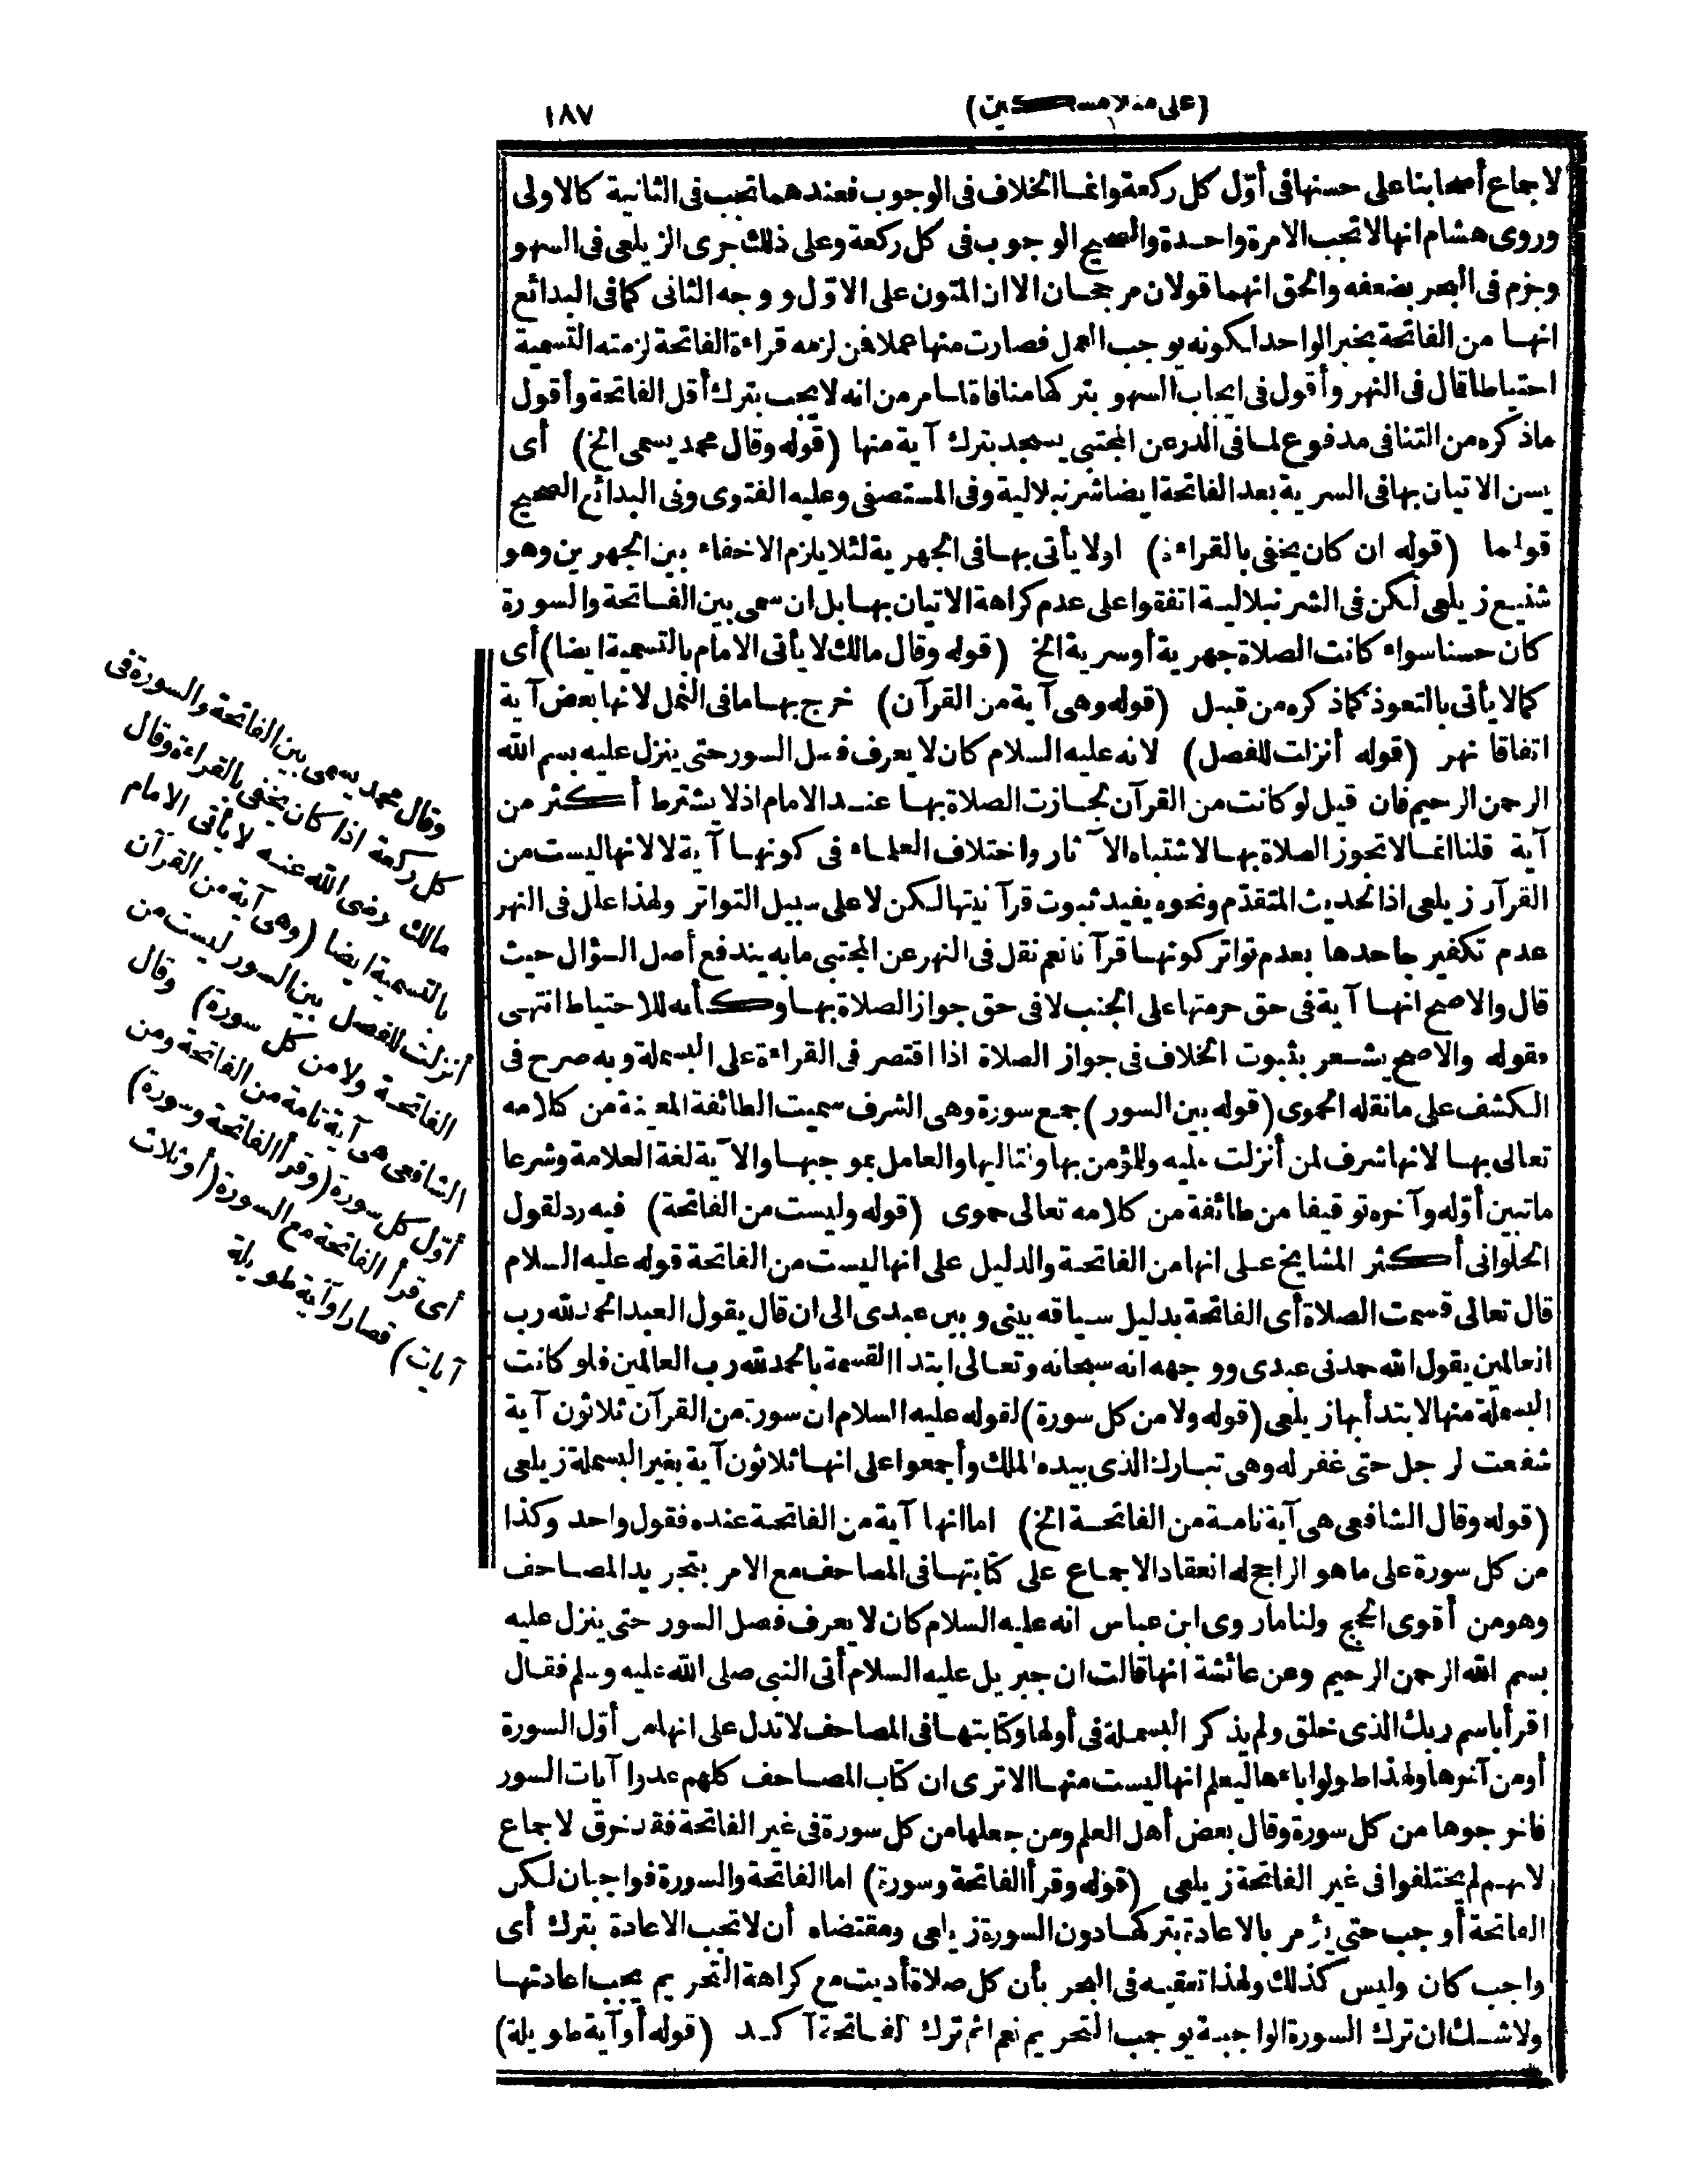 (على منلا مسكين)
١٨٧
لاجماع أصحابنا على حسنها فى أوّل كل ركعة وانما الخلاف فى الوجوب فعندهما تجب فى الثانية كالاولى
وروى هشام انها لا تجب الا مرة واحدة والصحيح الوجوب فى كل ركعة وعلى ذلك جرى الزيلعى فى السهو
وجزم فى البحر بضعفه والحق انهما قولان مرجحان الا ان المتون على الاوّل ووجه الثانى كما فى البدائع
انها من الفاتحة بخبر الواحد لكونه يوجب العمل فصارت منها عملا فمن لزمه قراءة الفاتحة لزمته التسمية
احتياطا قال فى النهر وأقول فى ايجاب السهو بتركها منافاة لما مر من انه لا يجب بترك أقل الفاتحة وأقول
ماذكره من التنافى مدفوع لما فى الدر عن المجتبى يسجد بترك آية منها (قوله وقال محمد يسمى الخ) أى
يسن الاتيان بها فى السرية بعد الفاتحة ايضا شرنبلالية وفى المستصفى وعليه الفتوى وفى البدائع الصحيح
قولهما (قوله ان كان يخفى بالقراءة) اولا يأتى بها فى الجهرية لئلا يلزم الاخفاء بين الجهرين وهو
شنيع زيلعى لكن فى الشرنبلالية اتفقوا على عدم كراهة الاتيان بها بل ان سمى بين الفاتحة والسورة
كان حسنا سواء كانت الصلاة جهرية أو سرية الخ (قوله وقال مالك لا يأتى الامام بالتسمية ايضا) أى
كما لا يأتى بالتعوذ كما ذكره من قبل (قوله وهى آية من القرآن) خرج بها ما فى النمل لانها بعض آية
اتفاقا نهر (قوله أنزلت للفصل) لانه عليه السلام كان لا يعرف فصل السور حتى ينزل عليه بسم الله
الرحمن الرحيم فان قيل لو كانت من القرآن لجازت الصلاة بها عند الامام اذ لا يشترط أكثر من
آية قلنا انما لا تجوز الصلاة بها لاشتباه الآثار واختلاف العلماء فى كونها آية لا لانها ليست من
القرآن زيلعى اذ الحديث المتقدّم ونحوه يفيد ثبوت قرآنيتها لكن لا على سبيل التواتر ولهذا علل فى النهر
عدم تكفير جاحدها بعدم تواتر كونها قرآنا نعم نقل فى النهر عن المجتبى ما به يندفع أصل السؤال حيث
قال والاصح انها آية فى حق حرمتها على الجنب لا فى حق جواز الصلاة بها وكأنه للاحتياط انتهى
فقوله والاصح يشعر بثبوت الخلاف فى جواز الصلاة اذا اقتصر فى القراءة على البسملة وبه صرح فى
الكشف على ما نقله الحموى (قوله بين السور) جمع سورة وهى الشرف سميت الطائفة المعينة من كلامه
تعالى بها لانها شرف لمن أنزلت عليه وللمؤمن بها ولتاليها والعامل بموجبها والآية لغة العلامة وشرعا
ماتبين أوّله وآخره توقيفا من طائفة من كلامه تعالى حموى (قوله وليست من الفاتحة) فيه رد لقول
الحلوانى أكثر المشايخ على انها من الفاتحة والدليل على انها ليست من الفاتحة قوله عليه السلام
قال تعالى قسمت الصلاة أى الفاتحة بدليل سياقه بينى وبين عبدى الى ان قال يقول العبد الحمد لله رب
العالمين يقول الله حمدنى عبدى ووجهه انه سبحانه وتعالى ابتدا القسمة بالحمد لله رب العالمين فلو كانت
البسملة منها لابتدأ بها زيلعى (قوله ولا من كل سورة) لقوله عليه السلام ان سورة من القرآن ثلاثون آية
شفعت لرجل حتى غفر له وهى تبارك الذى بيده الملك وأجمعوا على انها ثلاثون آية بغير البسملة زيلعى
(قوله وقال الشافعى هى آية تامة من الفاتحة الخ) اما انها آية من الفاتحة عنده فقول واحد وكذا
من كل سورة على ما هو الراجح له انعقاد الاجماع على كتابتها فى المصاحف مع الامر بتجريد المصاحف
وهو من أقوى الحجج ولنا ما روى ابن عباس انه عليه السلام كان لا يعرف فصل السور حتى ينزل عليه
بسم الله الرحمن الرحيم وعن عائشة انها قالت ان جبريل عليه السلام أتى النبى صلى الله عليه وسلم فقال
اقرأ باسم ربك الذى خلق ولم يذكر البسملة فى أولها وكتابتها فى المصاحف لا تدل على انها من أوّل السورة
أو من آخرها ولهذا طولوا باءها ليعلم انها ليست منها الا ترى ان كتاب المصاحف كلهم عدوا آيات السور
فاخرجوها من كل سورة وقال بعض أهل العلم ومن جعلها من كل سورة فى غير الفاتحة فقد خرق لاجماع
لانهم لم يختلفوا فى غير الفاتحة زيلعى (قوله وقرأ الفاتحة وسورة) اما الفاتحة والسورة فواجبان لكن
الفاتحة أوجب حتى يؤمر بالاعادة بتركها دون السورة زيلعى ومقتضاه أن لا تجب الاعادة بترك أى
واجب كان وليس كذلك ولهذا تعقبه فى البحر بأن كل صلاة أديت مع كراهة التحريم يجب اعادتها
ولا شك ان ترك السورة الواجبة يوجب التحريم نعم اثم ترك الفاتحة آكد (قوله أو آية طويلة)
وقال محمد يسمى بين الفاتحة والسورة فى
كل ركعة اذا كان يخفى بالقراءة وقال
مالك رضى الله عنه لا يأتى الامام
بالتسمية ايضا (وهى آية من القرآن
أنزلت للفصل بين السور ليست من
الفاتحة ولا من كل سورة) وقال
الشافعى هى آية تامة من الفاتحة ومن
أوّل كل سورة (وقرأ الفاتحة وسورة)
أى قرأ الفاتحة مع السورة (أو ثلاث
آيات) قصار او آية طويلة